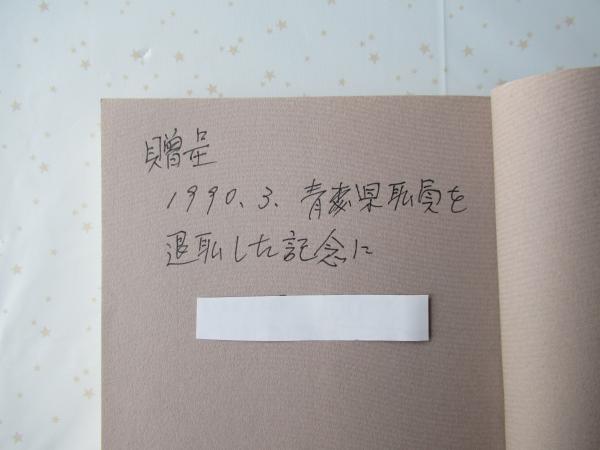 贈呈
1990.3. 青森県耺員を
退耺した記念に